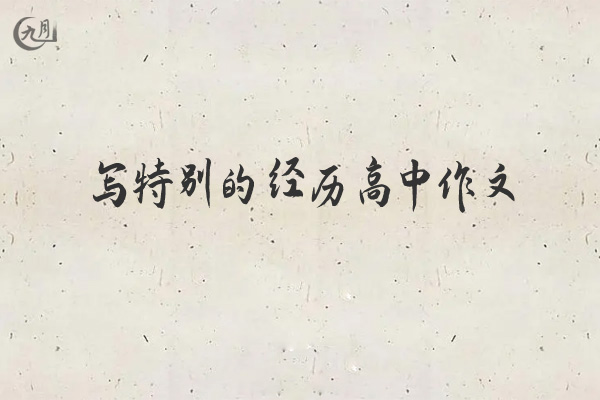 九月
写特别的经历高中作文